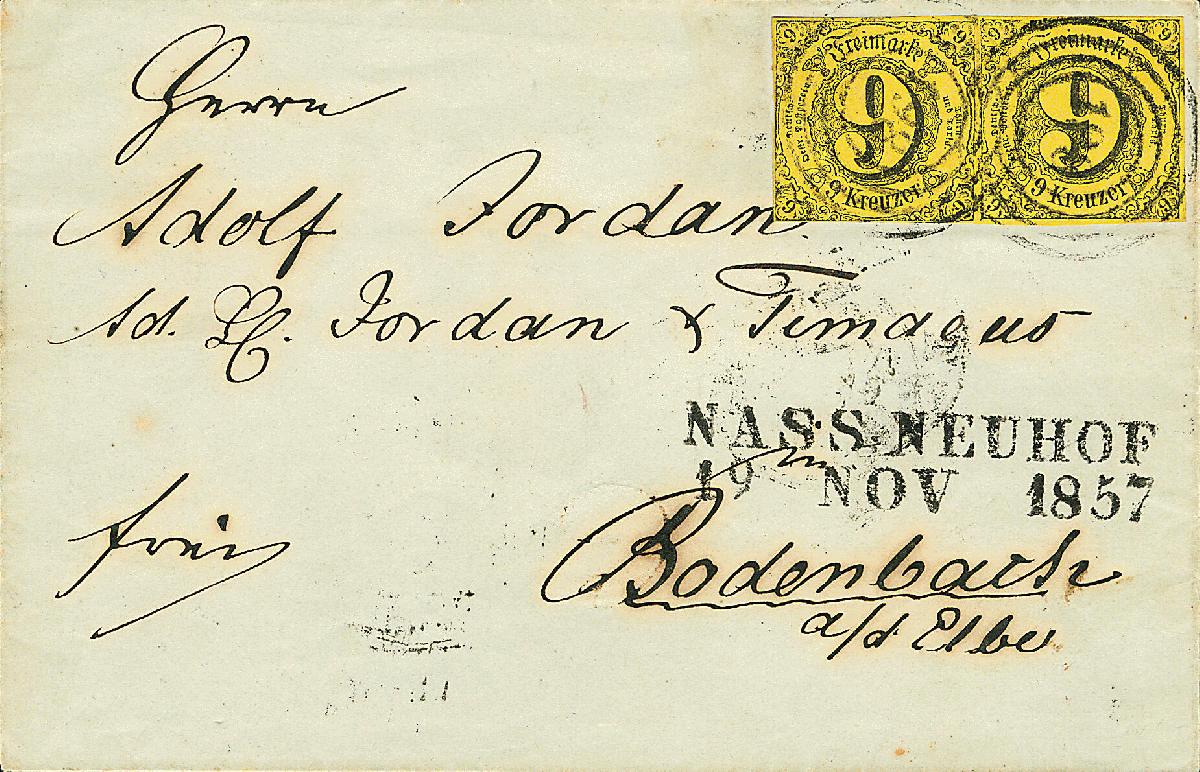 Herrn
Adolf Jordan
Ad. L. Jordan & Timaeus
NASS. NEUHOF
19 NOV 1857
in
frei
Bodenbach
a/d Elbe
Freimarke
9
9 Kreuzer
Freimarke
9
9 Kreuzer